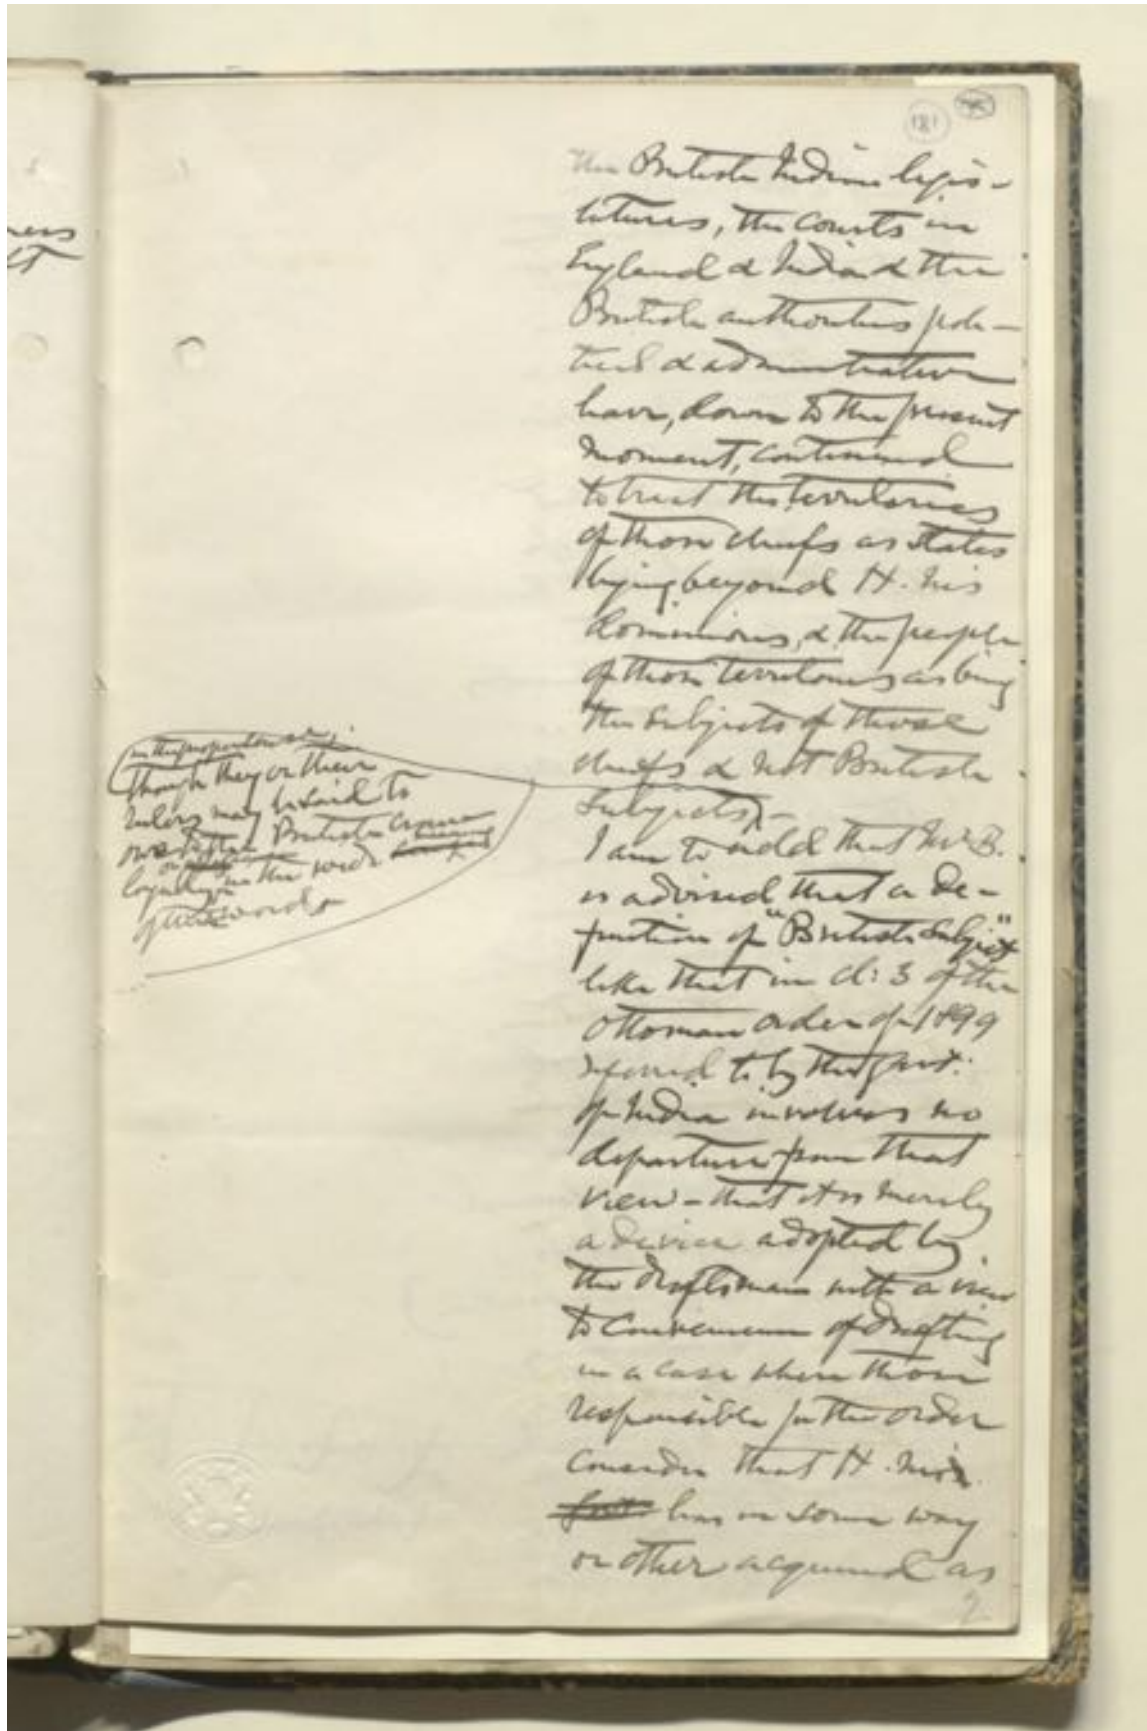 181
the British Indian legis-
latures, the Courts in
England & India & the
British authorities poli-
tical & administrative
have, down to the present
moment, continued
to treat the territories
of those chiefs as states
lying beyond H. M's
dominions, & the people
of those territories as being
the subjects of those
chiefs & not British
Subjects,-
though they or their
rulers may be said to
owe to the British Crown
loyalty in the wide
of the words
I am to add that Mr B.
is advised that a de-
finition of "British Subject"
like that in cl: 3 of the
Ottoman Order of 1899
referred to by the Govt:
of India involves no
departure from that
view - that it is merely
a device adopted by
the draftsman with a view
to convenience of drafting
in a case where those
responsible for the order
consider that H. M's
has in some way
or other acquired as
2